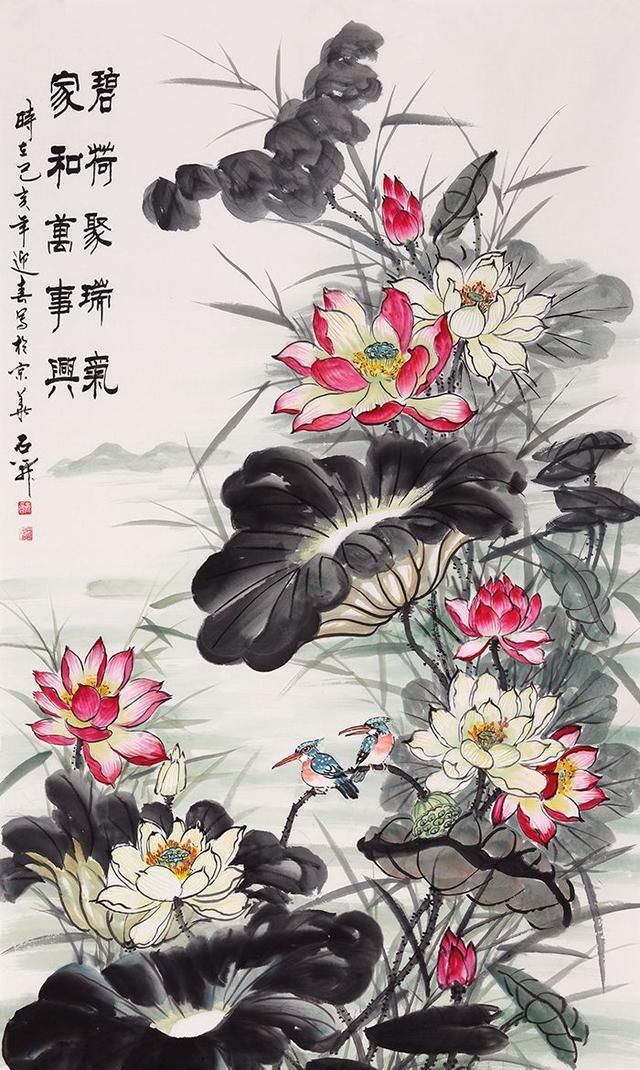 碧荷聚瑞氣
家和萬事興
時在己亥年迎春写於京華
石